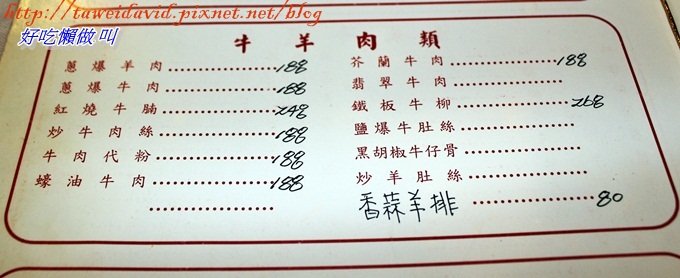 http://taweidavid.pixnet.net/blog
好吃懶做 叫
牛羊肉類
蔥爆羊肉 188
蔥爆牛肉 188
紅燒牛腩 248
炒牛肉絲 188
牛肉代粉 188
蠔油牛肉 188
芥蘭牛肉 188
翡翠牛肉
鐵板牛柳 268
鹽爆牛肚絲
黑胡椒牛仔骨
炒羊肚絲
香蒜羊排 80